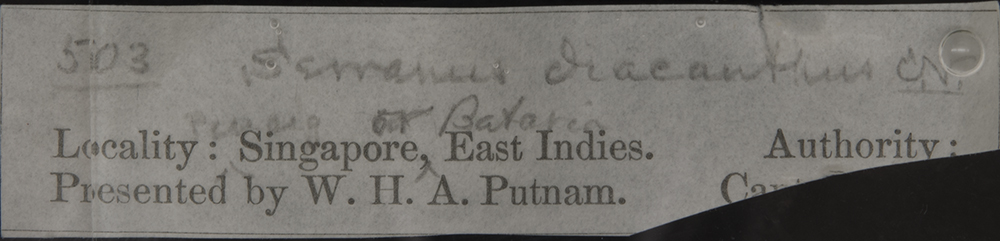 503 Serranus diacanthus C.V.
Penang or Batavia
Locality: Singapore, East Indies. Authority:
Presented by W. H. A. Putnam.